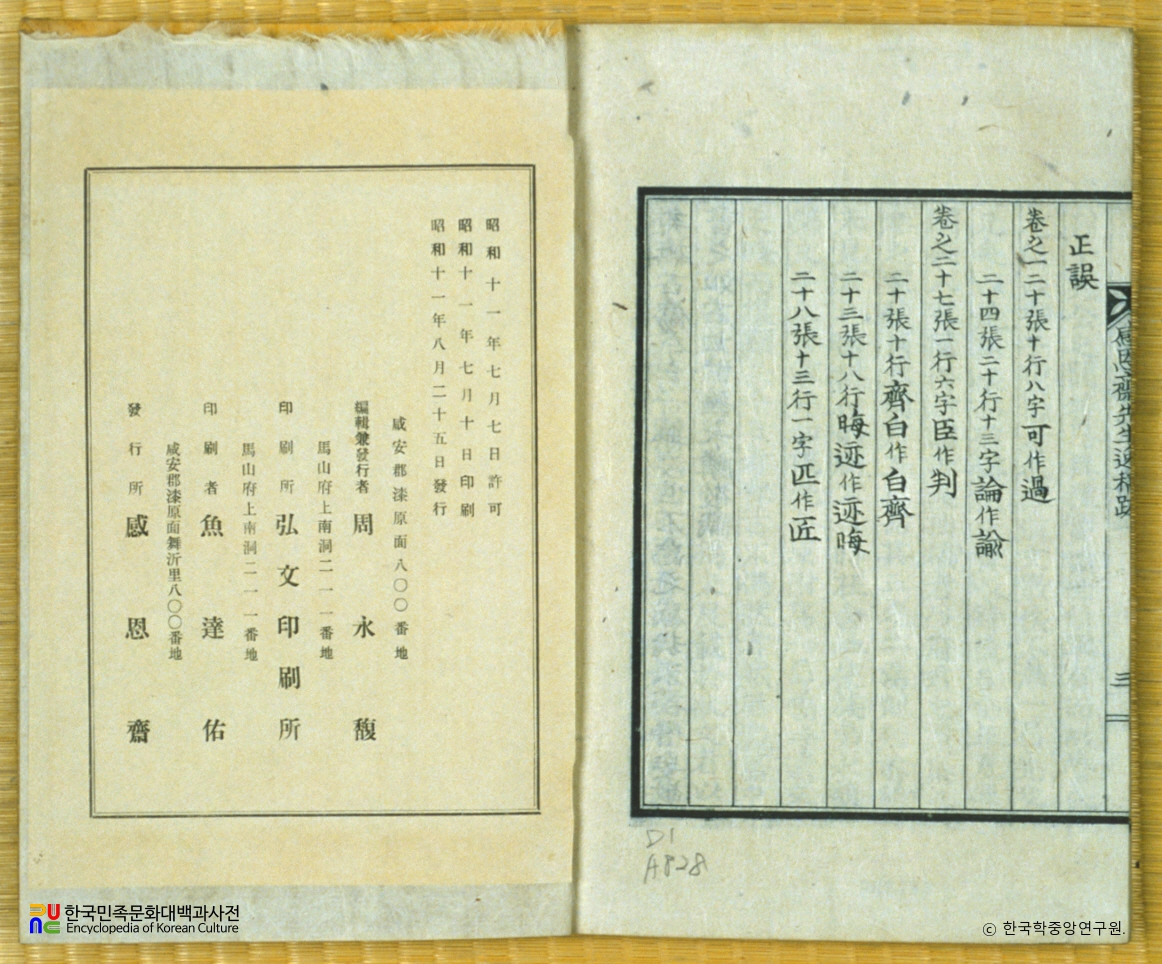 正誤
卷之一二十張十行八字可作過
二十四張二十行十三字論作諭
卷之二十七張一行六字臣作判
二十張十行齊白作白齊
二十三張十八行晦迹作迹晦
二十八張十三行一字匹作匠
感恩齋先生逸稿跋
三
D1
A828
昭和十一年七月七日許可
昭和十一年七月十日印刷
昭和十一年八月二十五日發行
咸安郡漆原面八〇〇番地
編輯兼發行者 周永馥
馬山府上南洞二一一番地
印刷所 弘文印刷所
馬山府上南洞二一一番地
印刷者 魚達佑
咸安郡漆原面舞沂里八〇〇番地
發行所 感恩齋
한국민족문화대백과사전
Encyclopedia of Korean Culture
© 한국학중앙연구원.